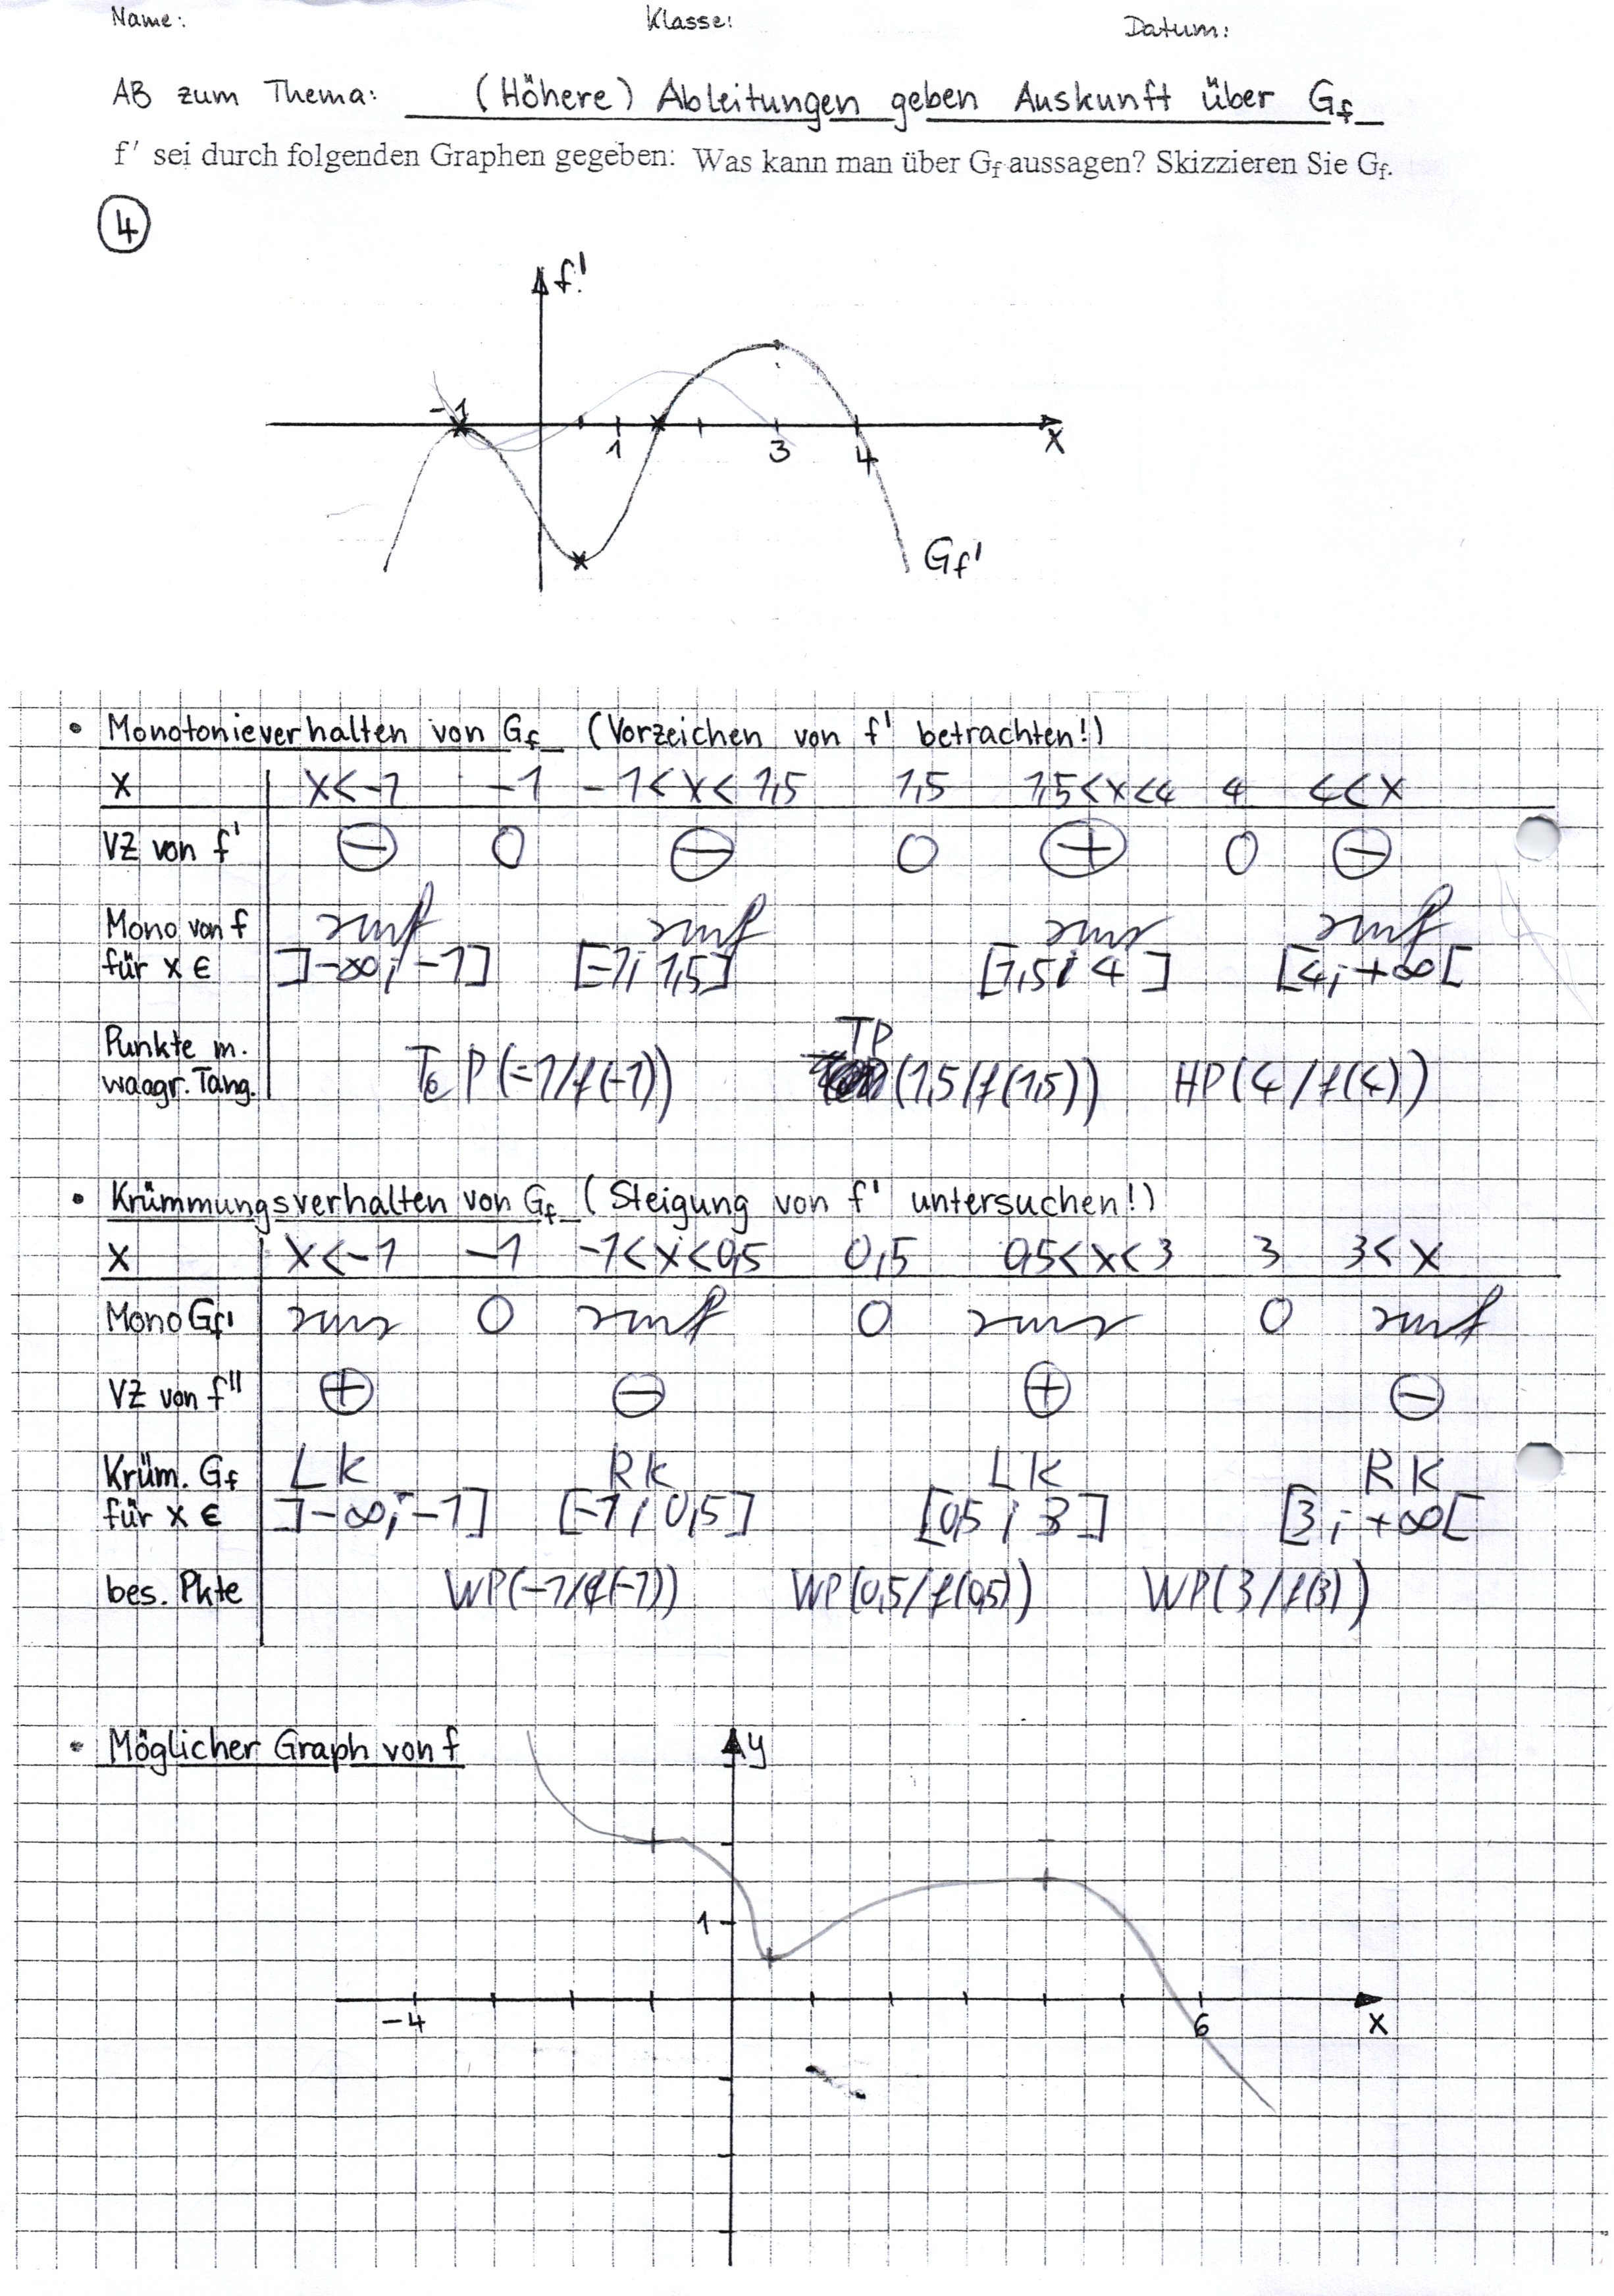 Name: Klasse: Datum:
AB zum Thema: (Höhere) Ableitungen geben Auskunft über Gf
f' sei durch folgenden Graphen gegeben: Was kann man über Gf aussagen? Skizzieren Sie Gf.
4
f'
-1 1 3 4 x
Gf'
• Monotonieverhalten von Gf (Vorzeichen von f' betrachten!)
x x<-1 -1 -1<x<1,5 1,5 1,5<x<4 4 4<x
VZ von f' ⊖ 0 ⊖ 0 ⊕ 0 ⊖
Mono von f smf smf sms smf
für x ∈ ]-∞;-1] [-1;1,5] [1,5;4] [4;+∞[
TP
Punkte m.
waagr. Tang. TeP(-1/f(-1)) (1,5/f(1,5)) HP(4/f(4))
• Krümmungsverhalten von Gf (Steigung von f' untersuchen!)
x x<-1 -1 -1<x<0,5 0,5 0,5<x<3 3 3<x
Mono Gf' sms 0 smf 0 sms 0 smf
VZ von f'' ⊕ ⊖ ⊕ ⊖
Krüm. Gf LK RK LK RK
für x ∈ ]-∞;-1] [-1;0,5] [0,5;3] [3;+∞[
bes. Pkte WP(-1/f(-1)) WP(0,5/f(0,5)) WP(3/f(3))
• Möglicher Graph von f
y
1
-4 6 x